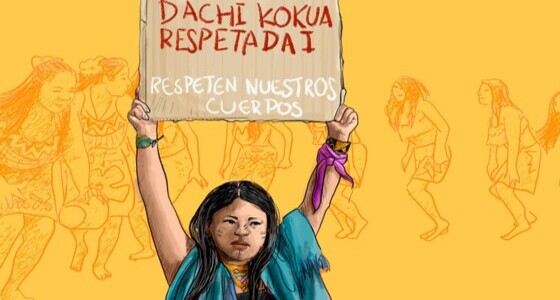 DACHI KOKUA
RESPETADAI
RESPETEN NUESTROS
CUERPOS